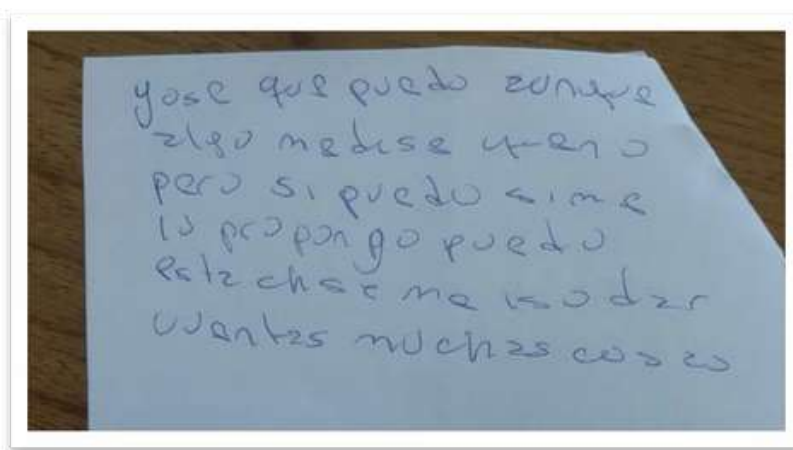 yose que puedo aunque
algo medise queno
pero si puedo sime
lo propongo puedo
esta chse me iso dar
cuantas muchas cosas